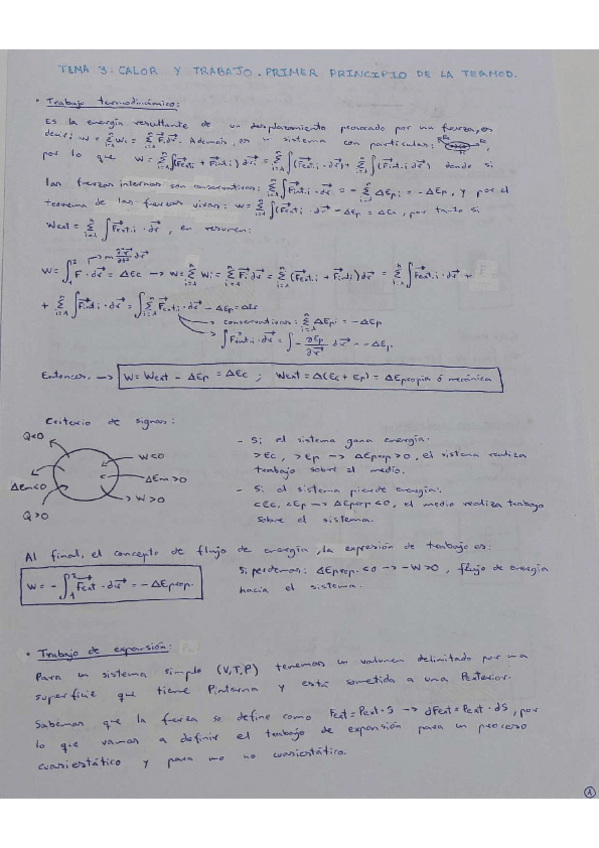 TEMA 3: CALOR Y TRABAJO. PRIMER PRINCIPIO DE LA TERMOD.
• Trabajo termodinámico:
Es la energía resultante de un desplazamiento provocado por una fuerza, es
decir: W = Σ Wi = Σ Fi·dr. Además, es un sistema con partículas:
por lo que W = Σ∫(Fext,i + Fint,i) dr = Σ∫(Fext,i · dr) + Σ∫(Fint,i dr) donde si
las fuerzas internas son conservativas: Σ∫Fint,i · dr = - Σ ΔEpi = -ΔEp, y por el
teorema de las fuerzas vivas: W = Σ∫(Fext,i · dr - ΔEp = ΔEc, por tanto si
Wext = Σ∫Fext,i · dr, en resumen:
W = ∫₁² F · dr = ΔEc → W = Σ Wi = Σ Fi dr = Σ (Fext,i + Fint,i) dr = Σ∫Fext,i · dr +
+ Σ∫Fint,i · dr = ∫Σ Fext,i · dr - ΔEp = ΔEc
→ conservativas: Σ ΔEpi = -ΔEp
→ ∫Fint,i · dr = ∫ - ∂Ep/∂r dr = -ΔEp.
Entonces → W = Wext - ΔEp = ΔEc ; Wext = Δ(Ec + Ep) = ΔEpropia ó mecánica
Criterio de signos:
Q<0
W<0
ΔEm<0
ΔEm>0
W>0
Q>0
- Si el sistema gana energía:
>Ec, >Ep → ΔEprop>0, el sistema realiza
trabajo sobre el medio.
- Si el sistema pierde energía:
<Ec, <Ep → ΔEprop<0, el medio realiza trabajo
sobre el sistema.
Al final, el concepto de flujo de energía, la expresión de trabajo es:
W = - ∫₁² Fext · dr = -ΔEprop.
Si perdemos: ΔEprop. <0 → -W>0, flujo de energía
hacia el sistema.
• Trabajo de expansión:
Para un sistema simple (V,T,P) tenemos un volumen delimitado por una
superficie que tiene Pinterna y está sometida a una Pexterior.
Sabemos que la fuerza se define como Fext = Pext · S → dFext = Pext · dS, por
lo que vamos a definir el trabajo de expansión para un proceso
cuasiestático y para uno no cuasiestático.
1